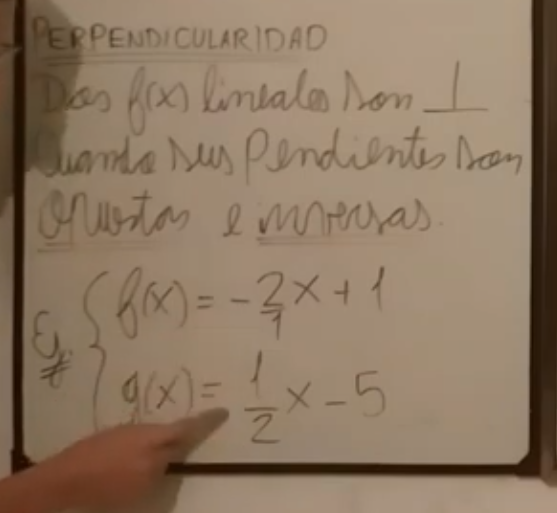 PERPENDICULARIDAD
Dos f(x) lineales son ⊥
Cuando sus Pendientes son
Opuestas e inversas.
Ej. { f(x) = - 2/1 x + 1
g(x) = 1/2 x - 5